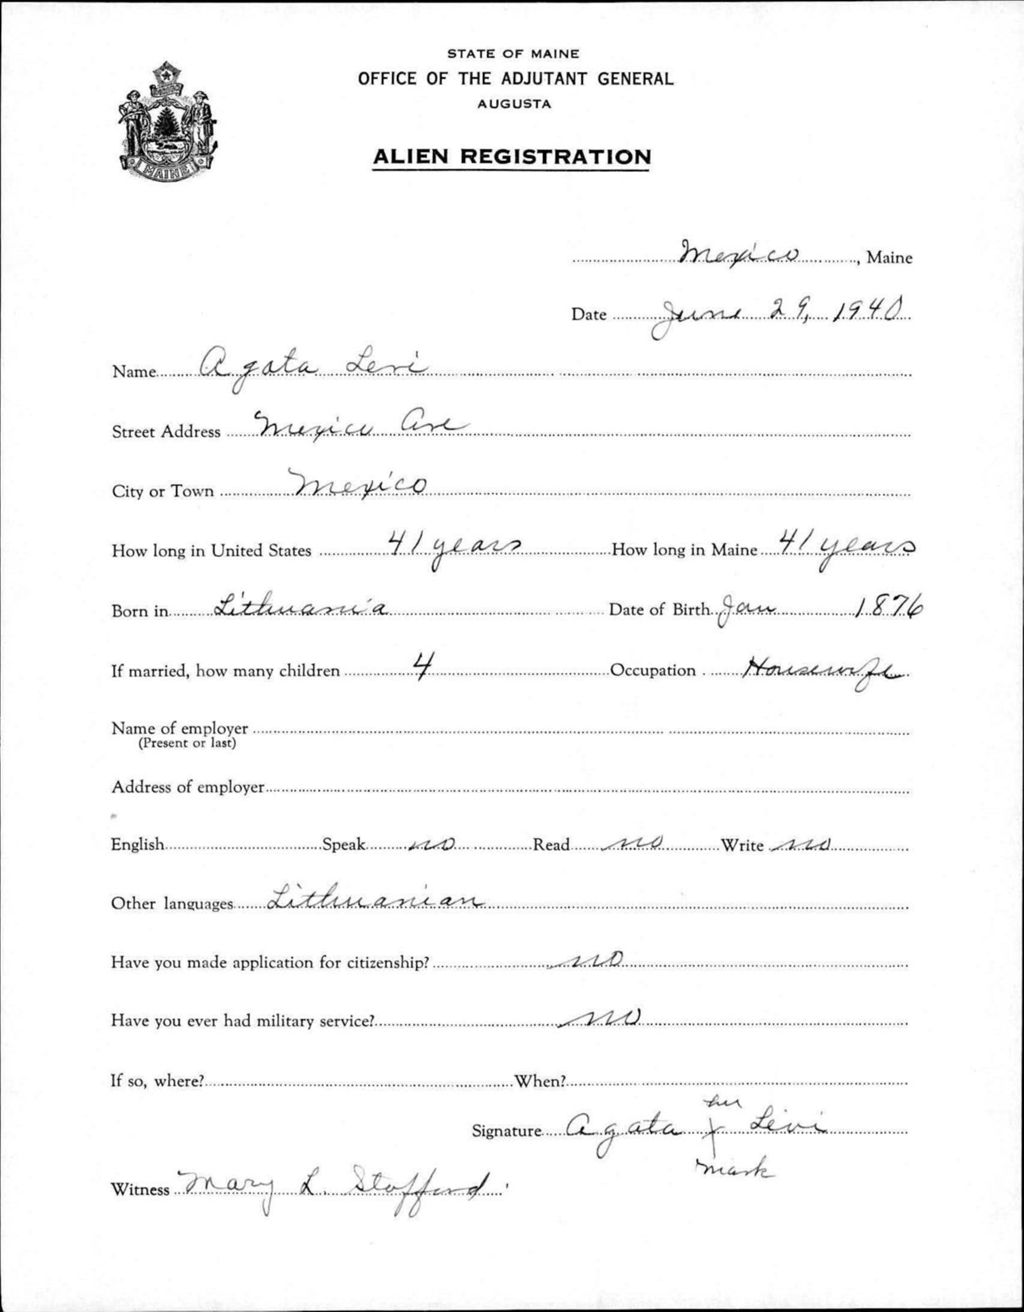 STATE OF MAINE
OFFICE OF THE ADJUTANT GENERAL
AUGUSTA
ALIEN REGISTRATION
MAINE
Mexico, Maine
Date June 29, 1940
Name Agata Levi
Street Address Mexico Ave
City or Town Mexico
How long in United States 41 years How long in Maine 41 years
Born in Lithuania Date of Birth Jan 1876
If married, how many children 4 Occupation Housewife
Name of employer
(Present or last)
Address of employer
English Speak no Read no Write no
Other languages Lithuanian
Have you made application for citizenship? no
Have you ever had military service? no
If so, where? When?
her
Signature Agata X Levi
mark
Witness Mary L. Stafford